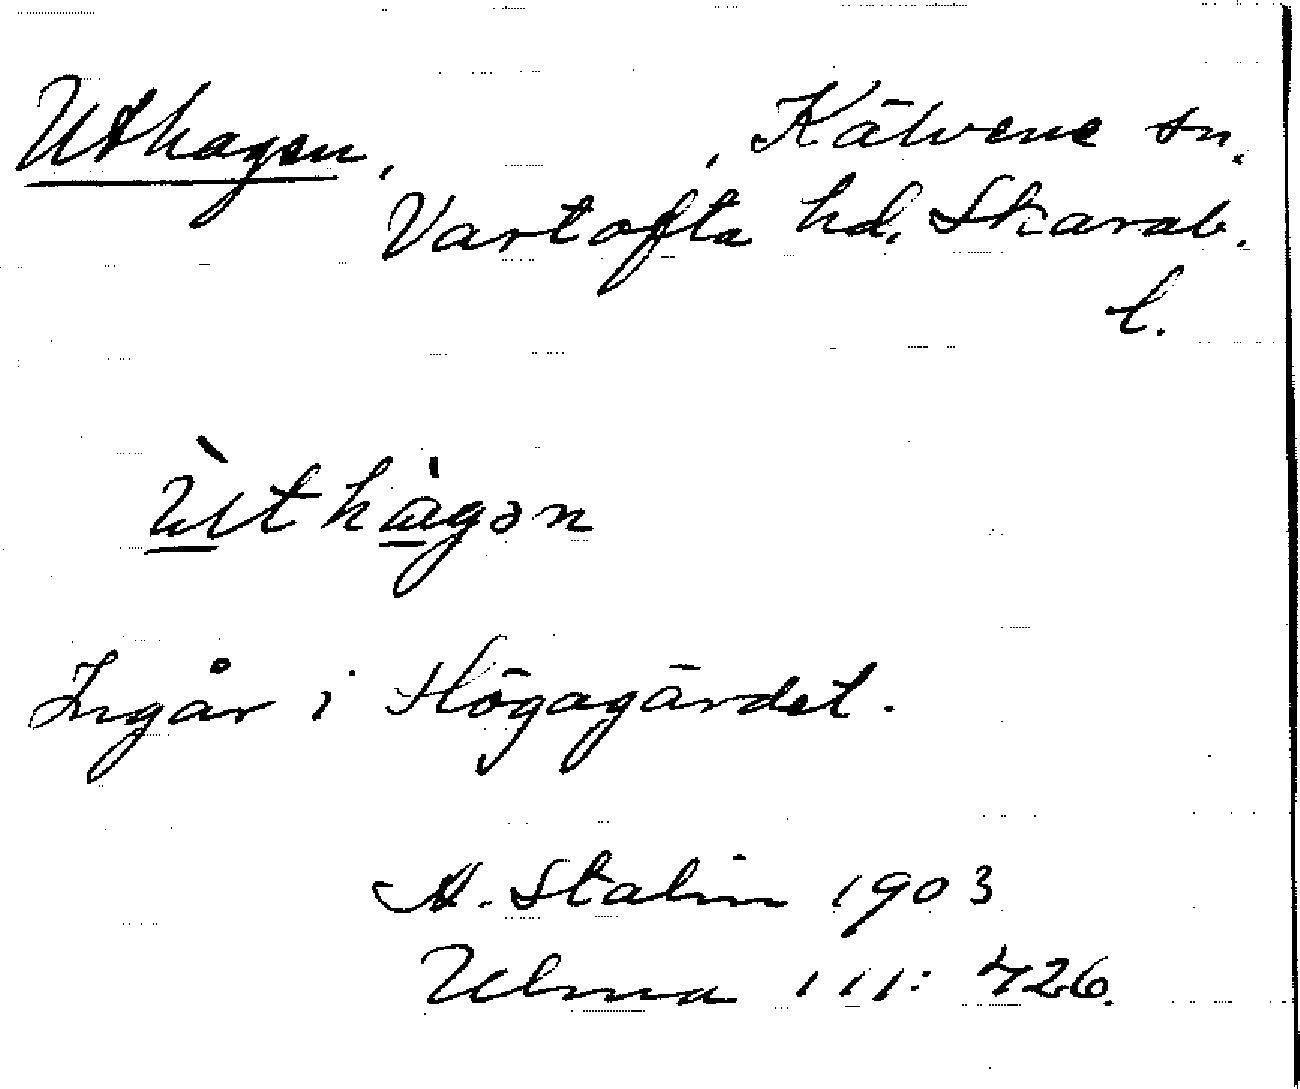 Uthagen, , Kälvene sn.
Vartofta hd, Skarab.
l.
Ùthàgən
Ingår i Högagärdet.
A. Stalin 1903
Ulma 111: 426.